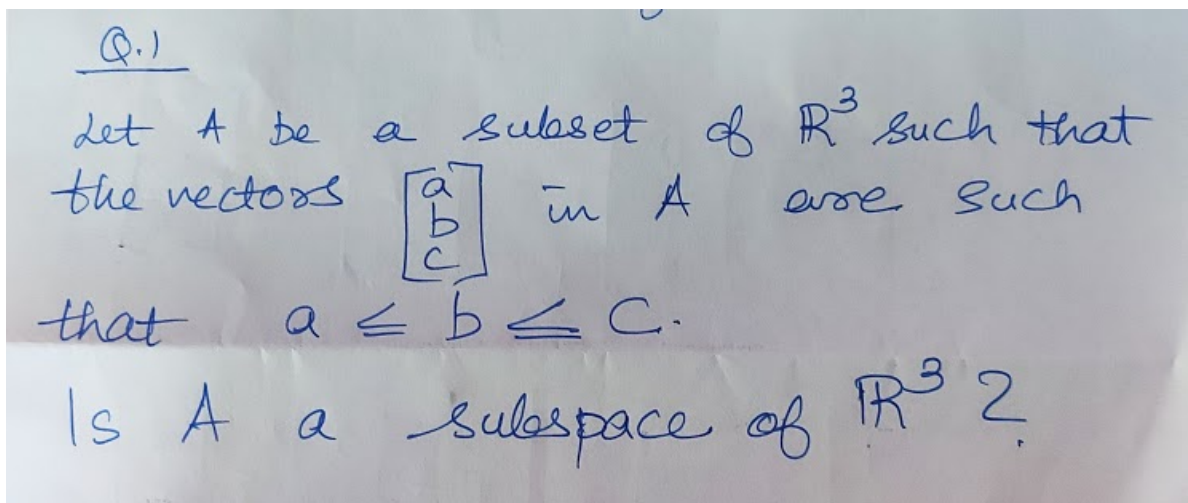 Q.1
Let A be a subset of ℝ³ such that
the vectors [a b c] in A are such
that a ≤ b ≤ c.
Is A a subspace of ℝ³ ?